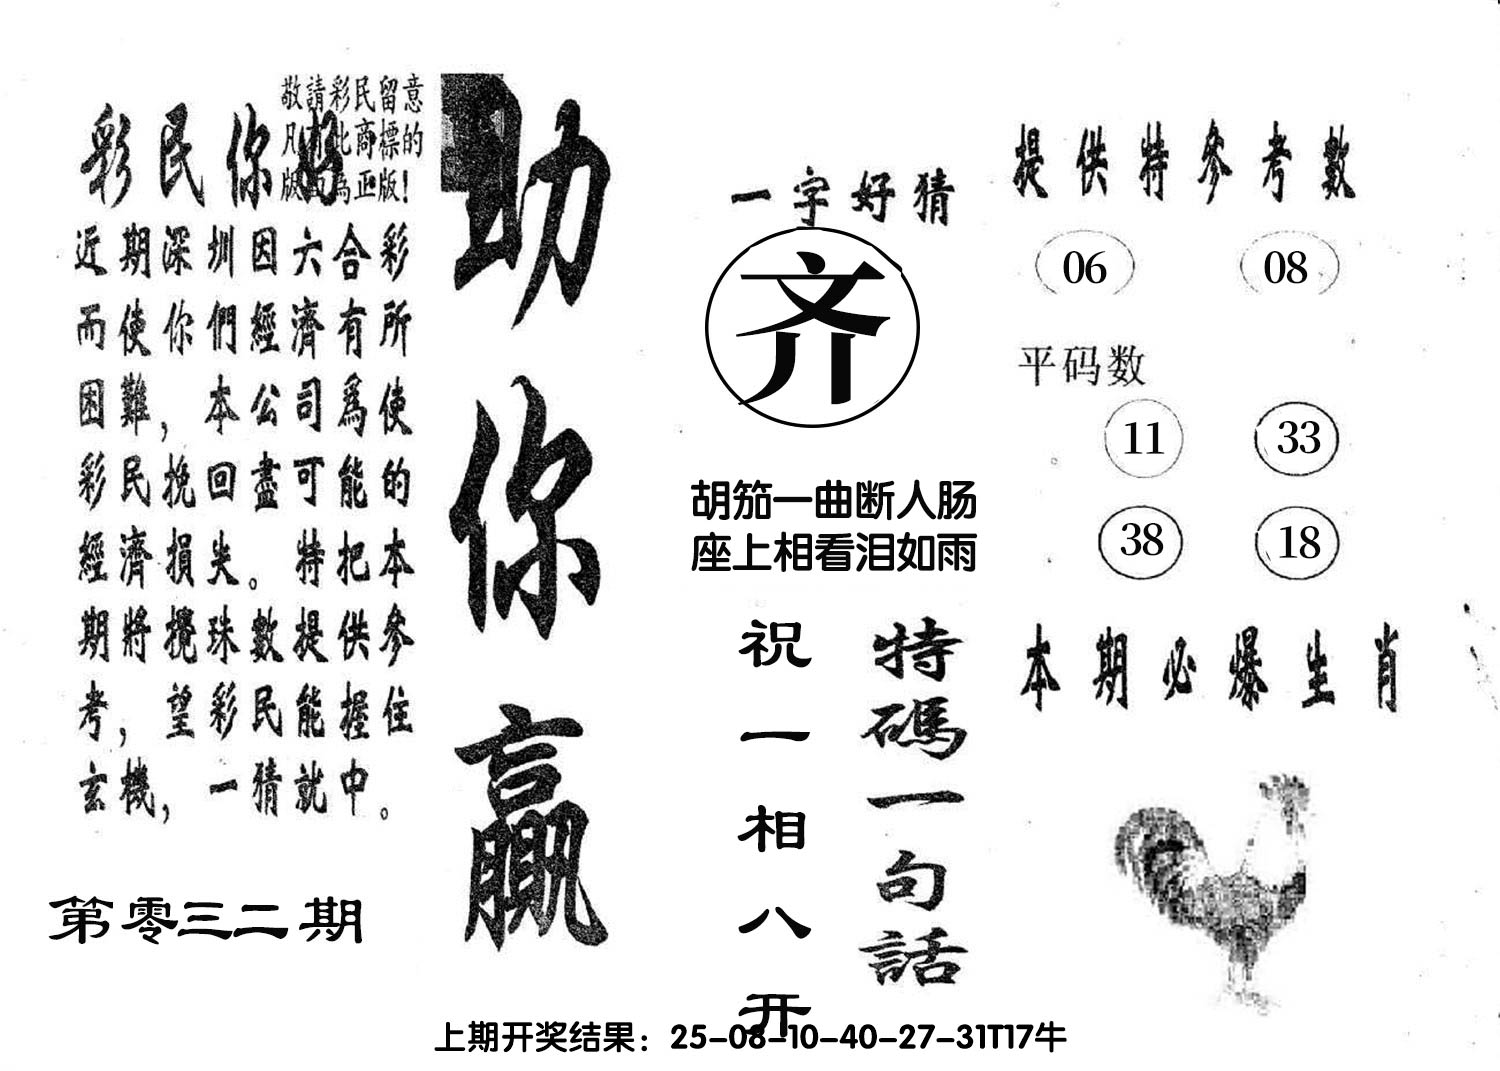 敬請彩民留意
凡有此商標的
版面為正版！
彩民你好
近期深圳因六合彩
而使你們經濟有所
困難，本公司爲使
彩民挽回盡可能的
經濟損失。特把本
期將攪珠數提供參
考，望彩民能握住
玄機，一猜就中。
第零三二期
助你贏
一字好猜
齐
胡笳一曲断人肠
座上相看泪如雨
特碼一句話
祝一相八开
提供特參考數
06 08
平码数
11 33
38 18
本期必爆生肖
上期开奖结果：25-08-10-40-27-31T17牛